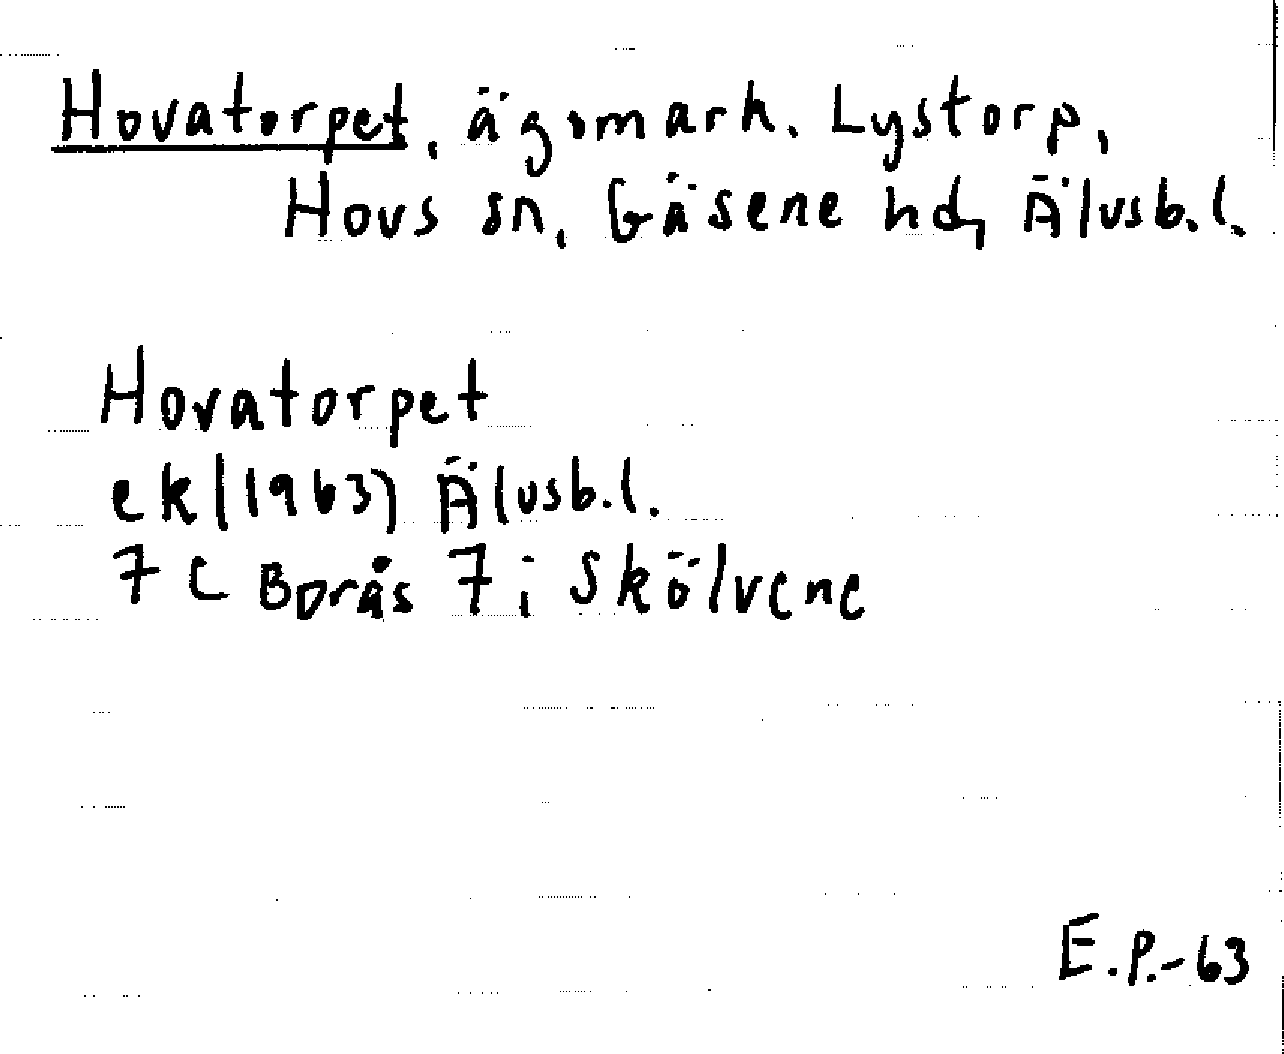 Hovatorpet, ägomark. Lystorp,
Hovs sn, Gäsene hd, Älvsb.l.
Hovatorpet
ek(1963) Älvsb.l.
7 C Borås 7 i Skölvene
E.P.-63